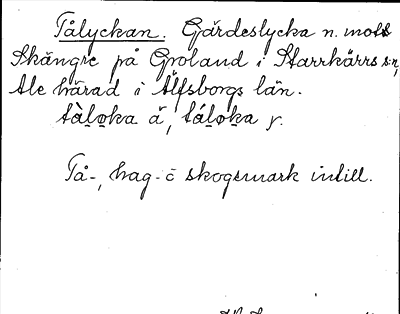 Tålyckan. Gärdeslycka n. mot
Skångre på Groland i Starrkärrs s:n,
Ale härad i Älfsborgs län.
tàlọka ä, táloka y.
Tå-, hag- o skogsmark intill.